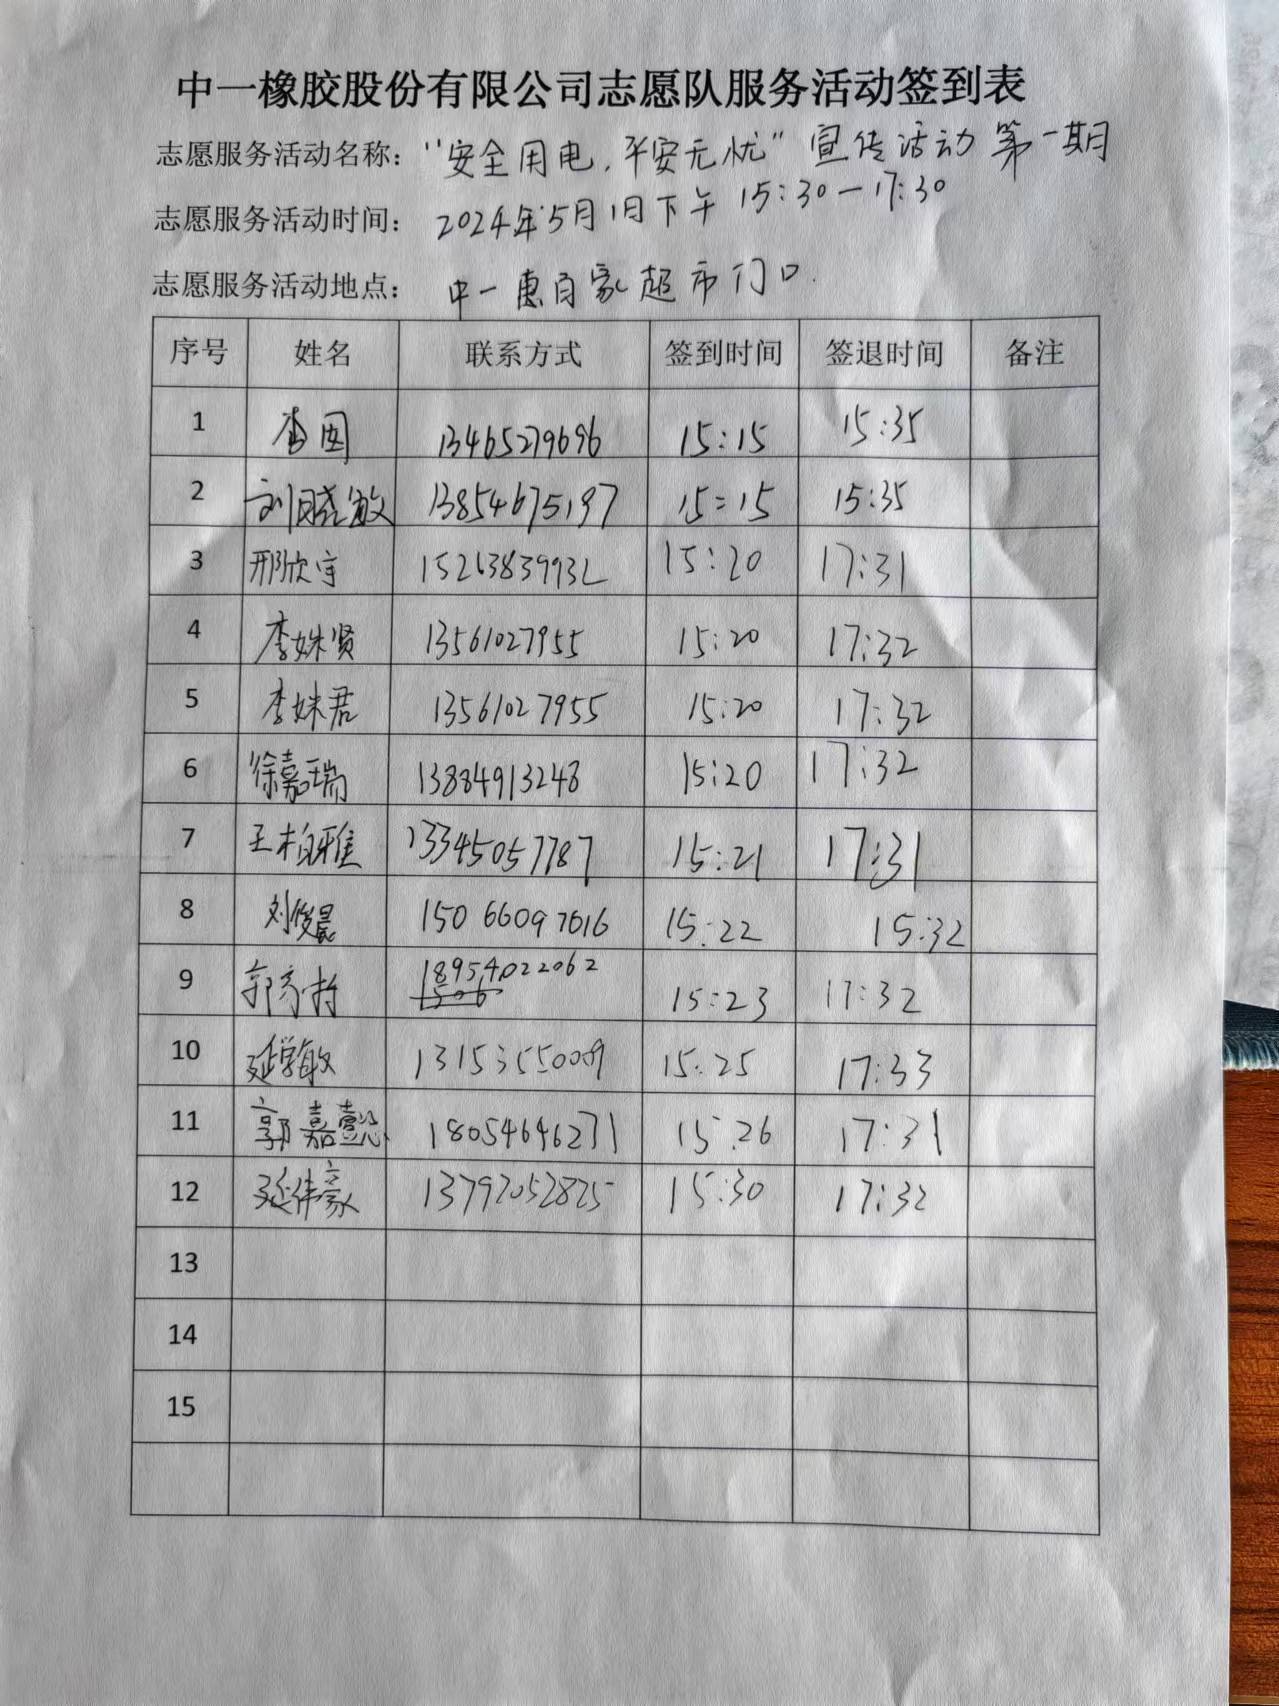 中一橡胶股份有限公司志愿队服务活动签到表
志愿服务活动名称："安全用电,平安无忧"宣传活动 第一期
志愿服务活动时间：2024年5月1日下午 15:30—17:30
志愿服务活动地点：中一惠百家超市门口.
序号 姓名 联系方式 签到时间 签退时间 备注
1 13465279696 15:15 15:35
2 刘晓敏 13854675197 15:15 15:35
3 邢欣宇 15263839932 15:20 17:31
4 李姝贤 13561027955 15:20 17:32
5 李姝君 13561027955 15:20 17:32
6 徐嘉瑞 13884913248 15:20 17:32
7 王柏雅 13345057787 15:21 17:31
8 刘俊晨 15066097616 15:22 15:32
9 18954022062 15:23 17:32
10 延学敏 13153550009 15:25 17:33
11 郭嘉懿 18054646271 15:26 17:31
12 延伟豪 13792052825 15:30 17:32
13
14
15